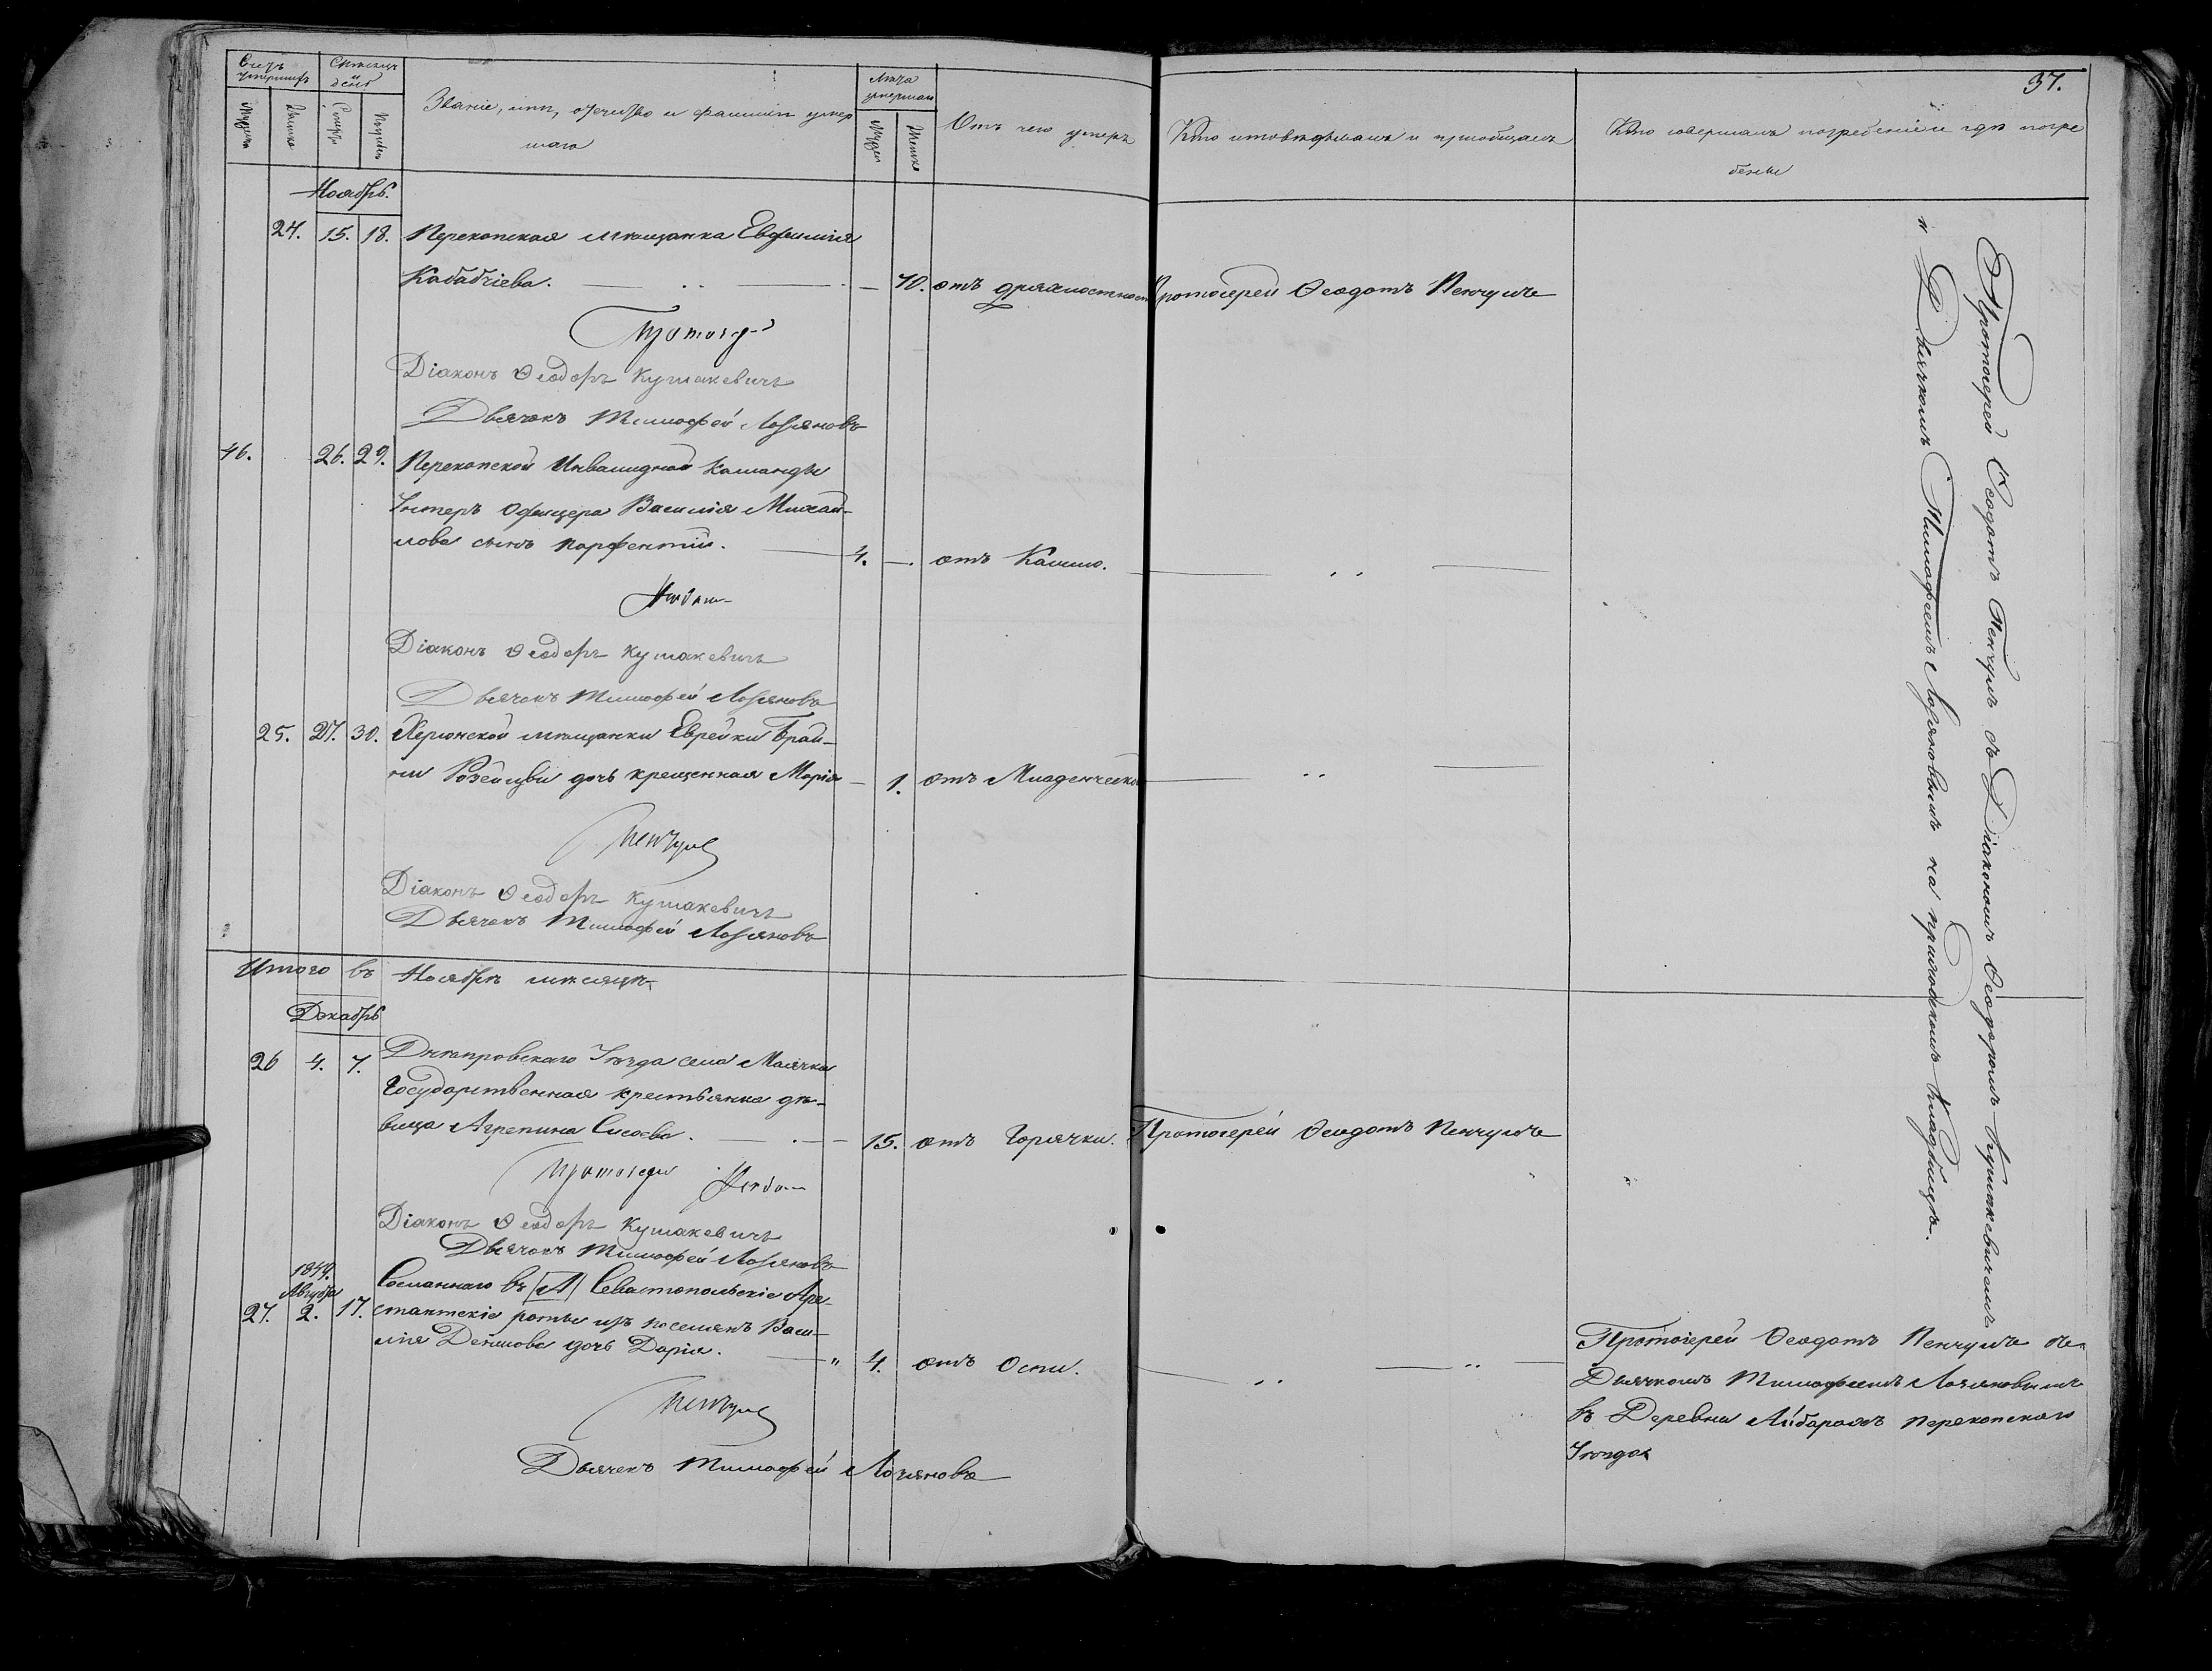 37.
Счетъ умершихъ
Мѣсяцъ и день
Званіе, имя, отчество и фамилія умер
шаго
Лѣта умершаго
Отъ чего умеръ
Кто исповѣдывалъ и пріобщалъ
Кто совершалъ погребеніе и гдѣ погре
бены
Мужеска
Женска
Смерти
Погребен
Мужес
Женска
Ноябрь.
24. 15. 18. Перекопская мѣщанка Евфимія
Кабабчіева. — 70. отъ дряхлостности Протоіерей Ѳеодотъ Пенчулъ
Протоіер
Діаконъ Ѳеодоръ Кушакевичъ
Дьячокъ Тимофей Лозяновъ
46. 26. 29. Перекопской Инвалидной Команды
Унтеръ Офицера Василія Михай-
лова сынъ Парфентій. — 4. — . отъ Кашлю.
Ѳеодот
Діаконъ Ѳеодоръ Кушакевичъ
Дьячокъ Тимофей Лозяновъ
25. 27. 30. Херсонской мѣщанки Еврейки Брай-
ны дочь крещенная Марія — 1. отъ Младенческой
Пенчулъ
Діаконъ Ѳеодоръ Кушакевичъ
Дьячокъ Тимофей Лозяновъ
Итого въ Ноябрѣ мѣсяцѣ
Декабрь
26 4. 7. Днѣпровскаго Уѣзда села Маячки
Государственная крестьянка дѣ-
вица Агрепина Сисоева. — 15. отъ Горячки. Протоіерей Ѳеодотъ Пенчулъ
Протоіерей Ѳеодот
Діаконъ Ѳеодоръ Кушакевичъ
Дьячокъ Тимофей Лозяновъ
1849.
Августа
27. 2. 17. Сосланнаго въ Севастопольскіе Аре-
стантскіе роты изъ поселянъ Васи-
лія Денисова дочь Дарія. — " 4. отъ Оспи.
Пенчулъ
Дьячекъ Тимофей Лозяновъ
Протоіерей Ѳеодотъ Пенчулъ съ
Дьячкомъ Тимофеемъ Лозяновымъ
въ Деревни Перекопскаго
Уѣзда
Протоіерей Ѳеодотъ Пенчулъ съ Діакономъ Ѳеодоромъ Кушакевичемъ
и Дьячкомъ Тимофеемъ Лозяновымъ на приходскомъ Кладбищѣ.